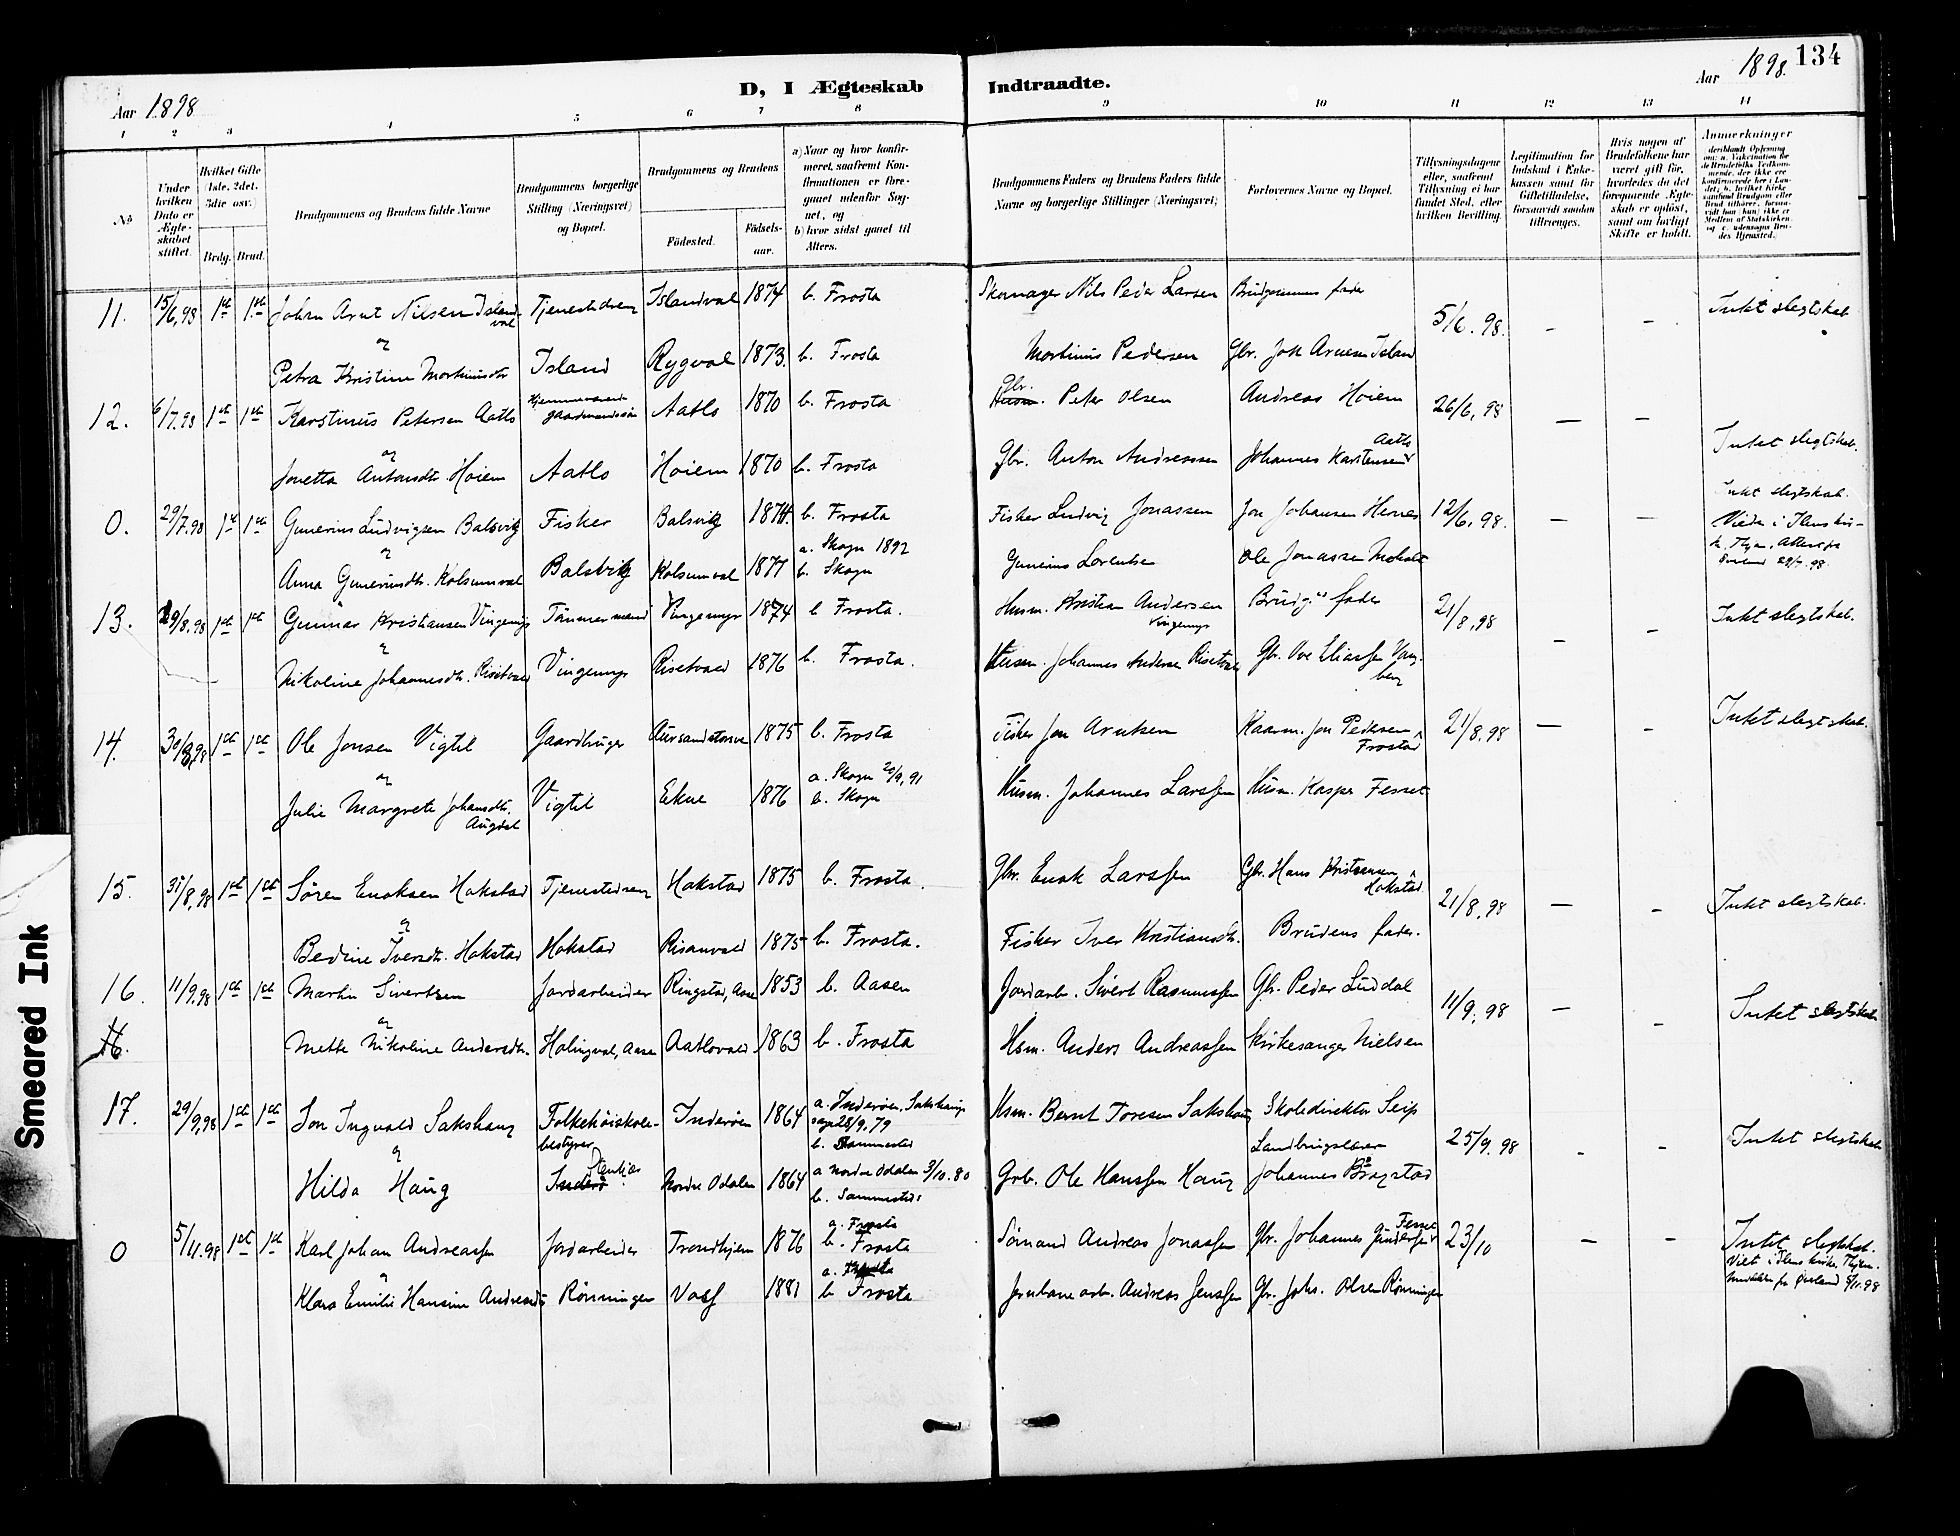 134
Aar 1898
D, I Ægteskab Indtraadte.
Aar 1898.
1 2 3 4 5 6 7 8 9 10 11 12 13 14
No
Under hvilken Dato er Ægteskabet stiftet.
Hvilket Gifte (1ste, 2det, 3die osv.)
Brdg. Brud.
Brudgommens og Brudens fulde Navne
Brudgommens borgerlige Stilling (Næringsvei) og Bopæl.
Brudgommens og Brudens
Fødested.
Fødselsaar.
a) Naar og hvor konfirmeret, saafremt Konfirmationen er foregaaet udenfor Sognet, og
b) hvor sidst gaaet til Alters.
Brudgommens Faders og Brudens Faders fulde Navne og borgerlige Stillinger (Næringsvei)
Forlovernes Navne og Bopæl.
Tillysningsdagene eller, saafremt Tillysning ei har fundet Sted, efter hvilken Bevilling.
Legitimation for Indskud i Enkekassen samt for Giftetilladelse, forsaavidt saadan tiltrænges.
Hvis nogen af Brudefolkene har været gift før, hvorledes da det foregaaende Ægteskab er opløst, samt om lovligt Skifte er holdt.
Anmærkninger
11. 15/6,98 1st 1st Johan Arnt Nilsen Islandval Tjenestedreng Islandval 1874 b. Frosta Skomager Nils Peder Larsen Brudgommens fader 5/6.98. – – Intet slegtskab
og
Petra Kristine Martinusdtr Island Rygval 1873. b. Frosta Martinus Pedersen Gbr. Joh Arnesen Island
12. 6/7.98 1st 1st Karstinus Petersen Aatlo gaardmandssøn Aatlo 1870 b. Frosta Gbr. Peter Olsen Andreas Hoiem 26/6,98 – – Intet slegtskab.
og
Jonetta Antonsdtr. Hoiem Aatlo Hoiem 1870 b. Frosta Gbr. Anton Andreassen Johannes Karstensen Aatlo
0. 29/7.98 1st 1st Gunerius Ludvigsen Balsvik Fisker Balsvik 1874. b. Frosta Fisker Ludvig Jonassen Jon Johansen Hernes 12/6,98. – – Intet slegtskab.
og
Anna Guneriusdtr. Kolsumval Balsvik Kolsumval 1877 a. Skogn 1892
b. Skogn Gunerius Lorentsen Ole Jonassen
13. 29/8,98 1st 1st Gunnar Kristiansen Vingemyr Tømmermand Vingemyr 1874 b Frosta. Husm. Kristian Andersen Vingemyr Brudg.s fader 21/8,98 – – Intet slegtskab.
og
Nikoline Johannesdtr. Risetvald Vingemyr Risetvald 1876 b. Frosta. Husm. Johannes Andersen Risetvald Gbr. Ove Eliassen Vangberg
14. 30/8,98 1st 1st Ole Jonsen Vigtil Gaardbruger 1875 b. Frosta Fisker Jon Arntsen Kaarm. Jon Pedersen Frostad 21/8.98 – – Intet slegtskab.
og
Julie Margrete Johansdtr. Augdal Vigtil Ekne 1876 a. Skogn 20/9,91
b. Skogn Husm. Johannes Larssen Husm. Kasper Fesset
15. 31/8,98 1st 1st Søren Enoksen Hokstad Tjenestedreng Hokstad 1875 b. Frosta. Gbr. Enok Larssen Gbr. Hans Kristensen Hokstad 21/8,98 – – Intet slegtskab.
og
Bedine Iversdtr. Hokstad Hokstad Risanvald 1875 b. Frosta. Fisker Iver Kristiansdtr. Brudens fader.
16. 11/9.98 1st 1st Martin Sivertsen Jordarbeider Ringstad, Aasen 1853 b. Aasen Jordarb. Sivert Rasmussen Gbr. Peder Lunddal 11/9,98 – – Intet slegtskab
og
16. Mette Nikoline Andersdtr. Holmgval, Aasen Aatlovald 1863 b. Frosta Hsm. Anders Andreassen Kirkesanger Nielsen
17. 29/9,98 1st 1st Jon Ingvald Sakshaug Folkehøiskolebestyrer Inderøen 1864 a. Inderøen, Sakshaugs sogn 28/9,79
b. Sammested Hsm. Bernt Toresen Sakshaug Skoledirektør Seip 25/9.98 – – Intet slegtskab
og
Hilda Haug Nordre Odalen 1864 a Nordre Odalen 3/10.80
b. Sammesteds Grb. Ole Hanssen Haug Landbrugslærer Johannes Bragstad
0 5/11.98 1st 1st Karl Johan Andreassen Jordarbeider Trondhjem 1876 a. Frosta
b. Frosta Sømand Andreas Jonassen Gbr. Johannes Gundersen Fesset 23/10 – – Intet slegtskab.
Viet i Ilens kirke Thjem.
og
Klara Emilie Hansine Andreasdtr Rönningen Voss 1881 b. Frosta Jernbanearb. Andreas Jenssen Gbr. Johs. Olsen Rönningen
Smeared Ink